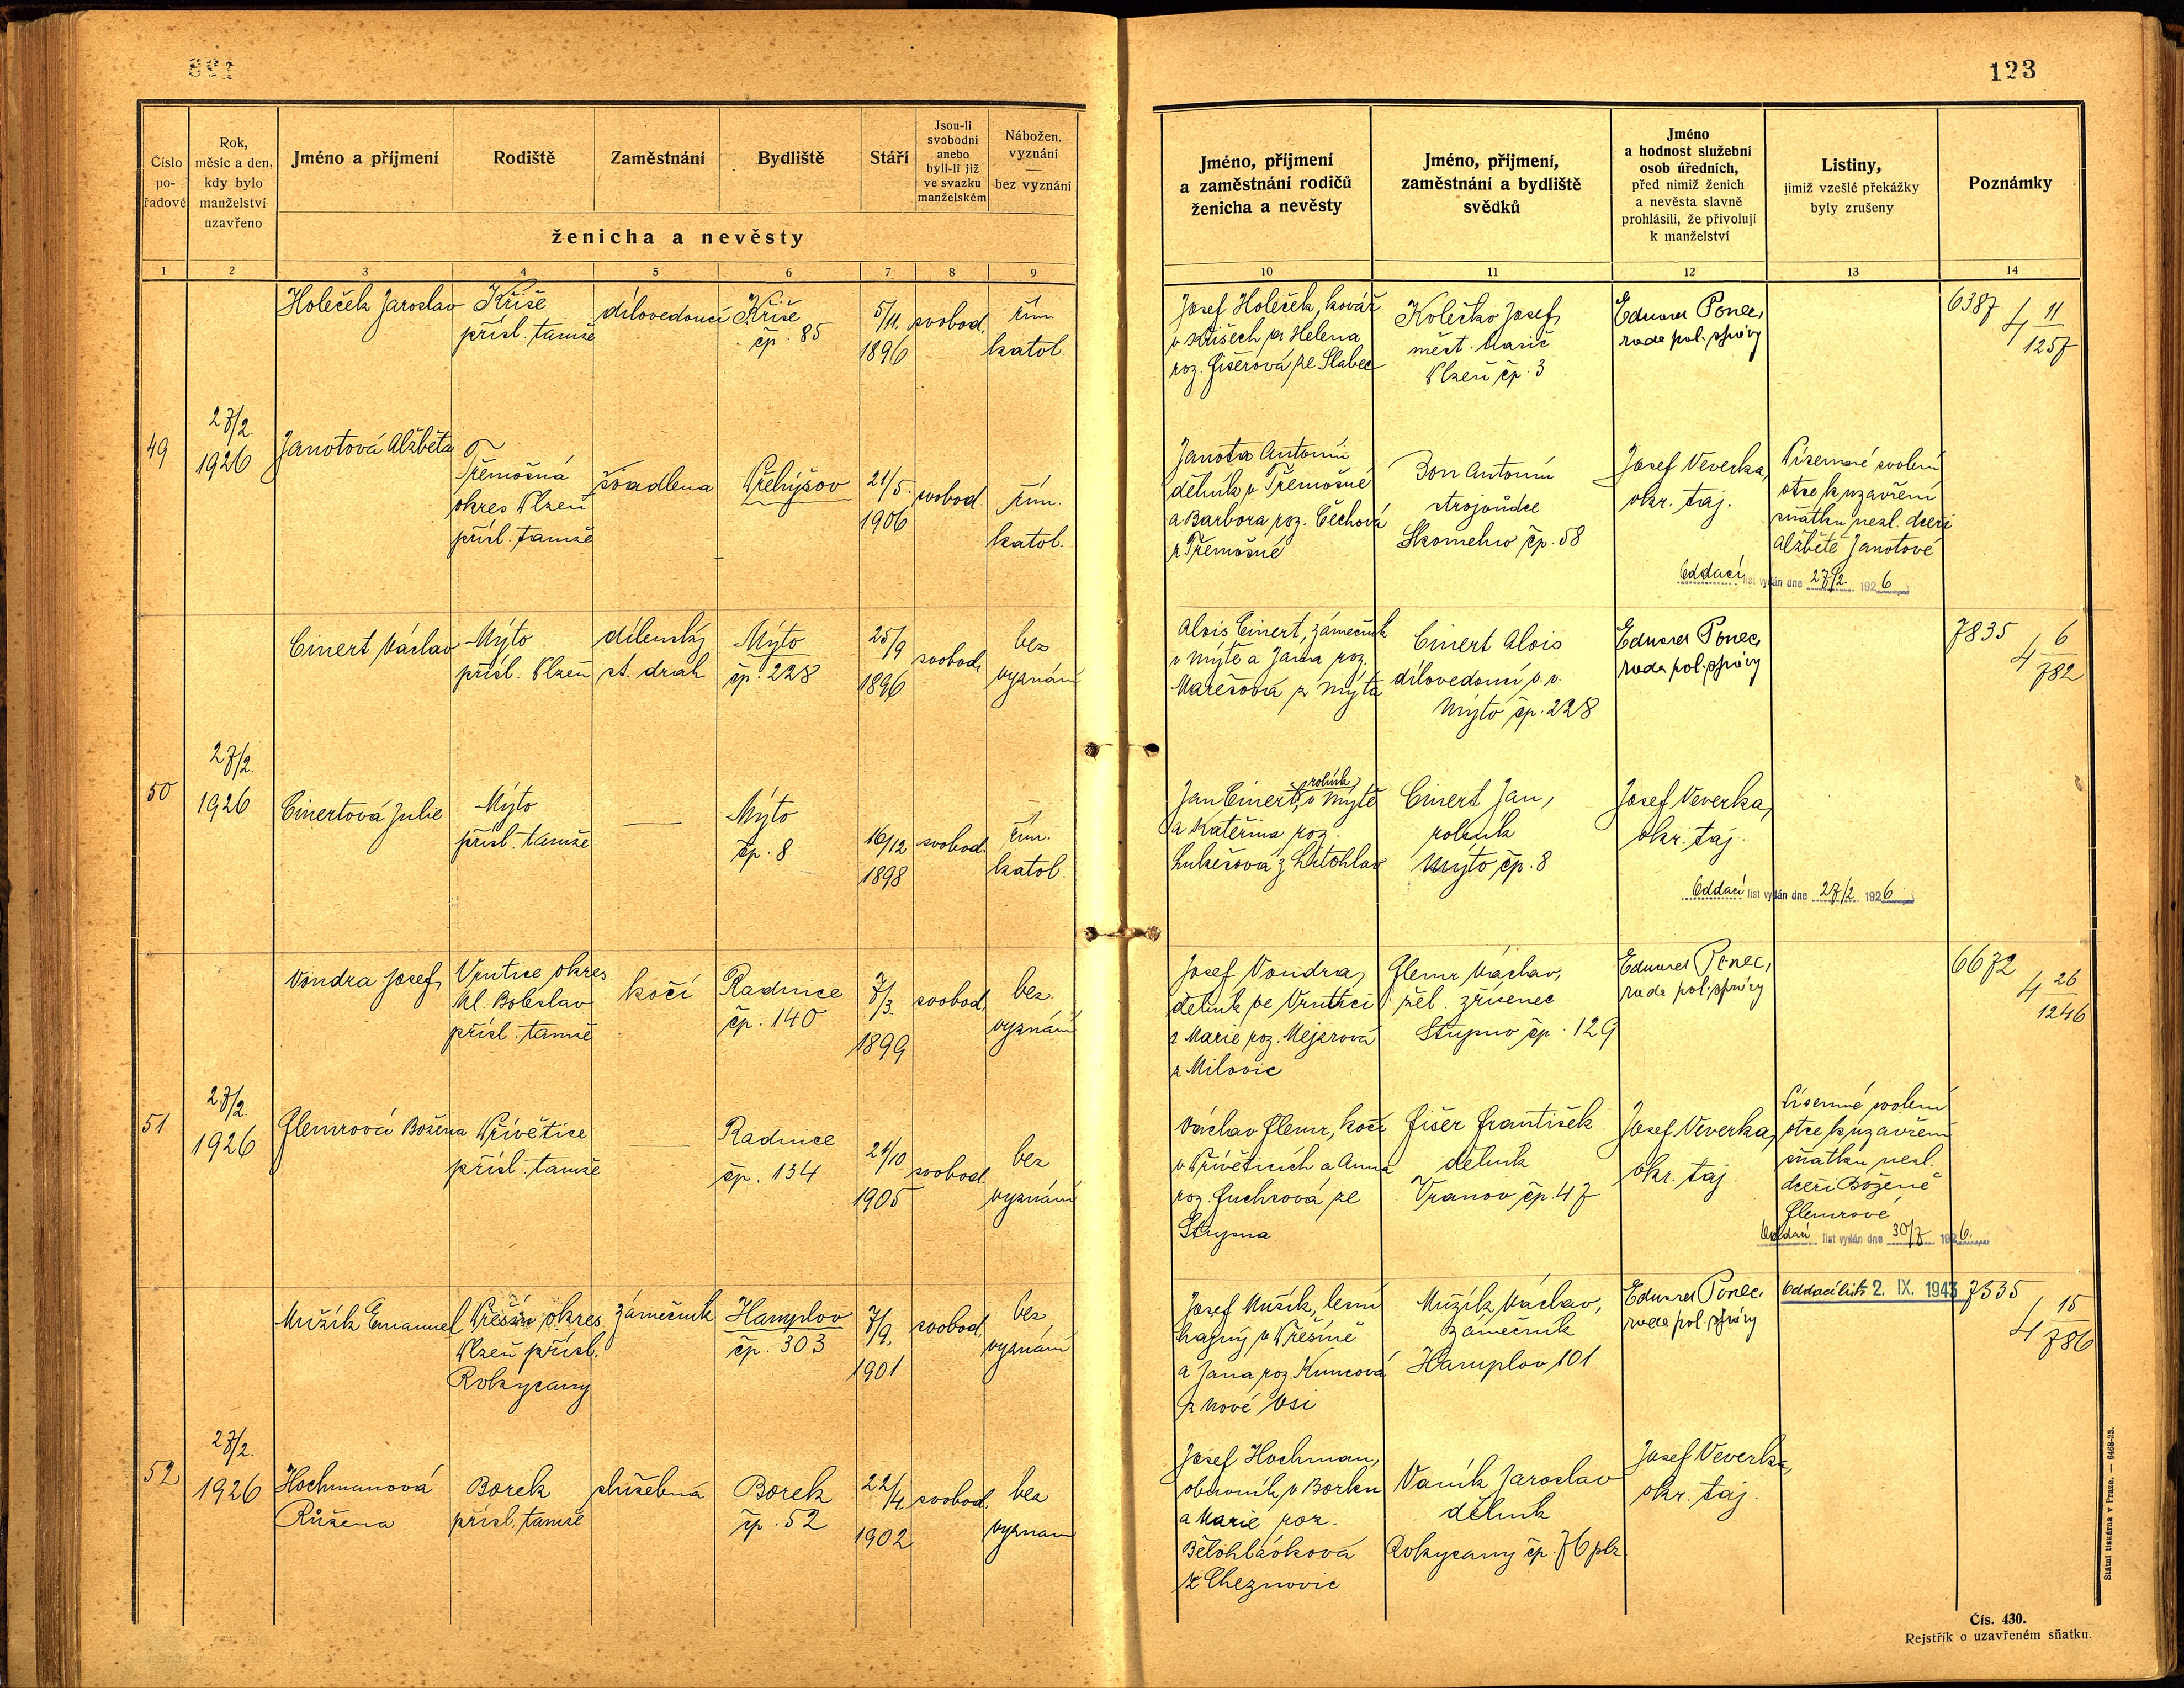 123
Číslo pořadové
Rok, měsíc a den, kdy bylo manželství uzavřeno
Jméno a příjmení
Rodiště
Zaměstnání
Bydliště
Stáří
Jsou-li svobodni anebo byli-li již ve svazku manželském
Nábožen. vyznání — bez vyznání
ženicha a nevěsty
Jméno, příjmení a zaměstnání rodičů ženicha a nevěsty
Jméno, příjmení, zaměstnání a bydliště svědků
Jméno a hodnost služební osob úředních, před nimiž ženich a nevěsta slavně prohlásili, že přivolují k manželství
Listiny, jimiž vzešlé překážky byly zrušeny
Poznámky
1 2 3 4 5 6 7 8 9 10 11 12 13 14
49
27/2. 1926
Holeček Jaroslav
Kříše
přísl. tamže
dílovedoucí
Kříše
čp. 85
5/11. 1896
svobod.
řím.
katol.
Josef Holeček, kovář
v Kříšech a Helena
roz. Fišerová ze Slabec
Kolečko Josef,
měst. hasič
Plzeň čp. 3
Eduard Ponec,
rada pol. správy
6387
4 11/1257
Janotová Alžběta
Třemošná
okres Plzeň
přísl. tamže
švadlena
Přehýšov
21/5. 1906
svobod.
řím.
katol.
Janota Antonín
dělník v Třemošné
a Barbora roz. Čechová
z Třemošné
Bon Antonín
strojvůdce
Skomelno čp. 58
Josef Veverka,
okr. taj.
Písemné svolení
otce k uzavření
sňatku nezl. dceři
Alžbětě Janotové
Oddací list vydán dne 27/2. 1926
50
27/2. 1926
Cinert Václav
Mýto
přísl. Plzeň
dílenský
st. drah
Mýto
čp. 228
25/9 1896
svobod.
bez
vyznání
Alois Cinert, zámečník
v Mýtě a Jana roz.
Marešová z Mýta
Cinert Alois
dílovedoucí v. v.
Mýto čp. 228
Eduard Ponec,
rada pol. správy
7835
4 6/782
Cinertová Julie
Mýto
přísl. tamže
—
Mýto
čp. 8
16/12 1898
svobod.
řím.
katol.
Jan Cinert, rolník, v Mýtě
a Kateřina roz.
Lukešová z Litohlav
Cinert Jan,
rolník
Mýto čp. 8
Josef Veverka,
okr. taj.
Oddací list vydán dne 27/2. 1926
51
27/2. 1926
Vondra Josef,
Vrutice okres
Ml. Boleslav
přísl. tamže
kočí
Radnice
čp. 140
7/3. 1899
svobod.
bez
vyznání
Josef Vondra,
dělník ve Vrutici
a Marie roz. Mejzrová
z Milovic
Flemr Václav,
žel. zřízenec
Stupno čp. 129
Eduard Ponec,
rada pol. správy
6672
4 26/1246
Flemrová Božena
Přívětice
přísl. tamže
—
Radnice
čp. 134
21/10 1905
svobod.
bez
vyznání
Václav Flemr, kočí
v Příveticích a Anna
roz. Fuchsová ze
Stupna
Fišer František
dělník
Vranov čp. 47
Josef Veverka,
okr. taj.
Písemné svolení
otce k uzavření
sňatku nezl.
dceři Boženě
Flemrové
Oddací list vydán dne 30/7 1926.
52
27/2. 1926
Mužík Emanuel
okres
Plzeň přísl.
Rokycany
zámečník
Hamplov
čp. 303
7/9. 1901
svobod.
bez
vyznání
Josef Mužík, lesní
hajný v
a Jana roz. Kuncová
z Nové Vsi
Mužík Václav,
zámečník
Hamplov 101
Eduard Ponec,
rada pol. správy
Oddací list 2. IX. 1943
7535
4 15/786
Hochmanová
Růžena
Borek
přísl. tamže
služebná
Borek
čp. 52
22/4 1902
svobod.
bez
vyznání
Josef Hochman,
obuvník v Borku
a Marie roz.
Bělohlávková
z Cheznovic
Vaník Jaroslav
dělník
Rokycany čp. 76 plz.
Josef Veverka,
okr. taj.
Státní tiskárna v Praze. — 6468-23.
Čís. 430.
Rejstřík o uzavřeném sňatku.